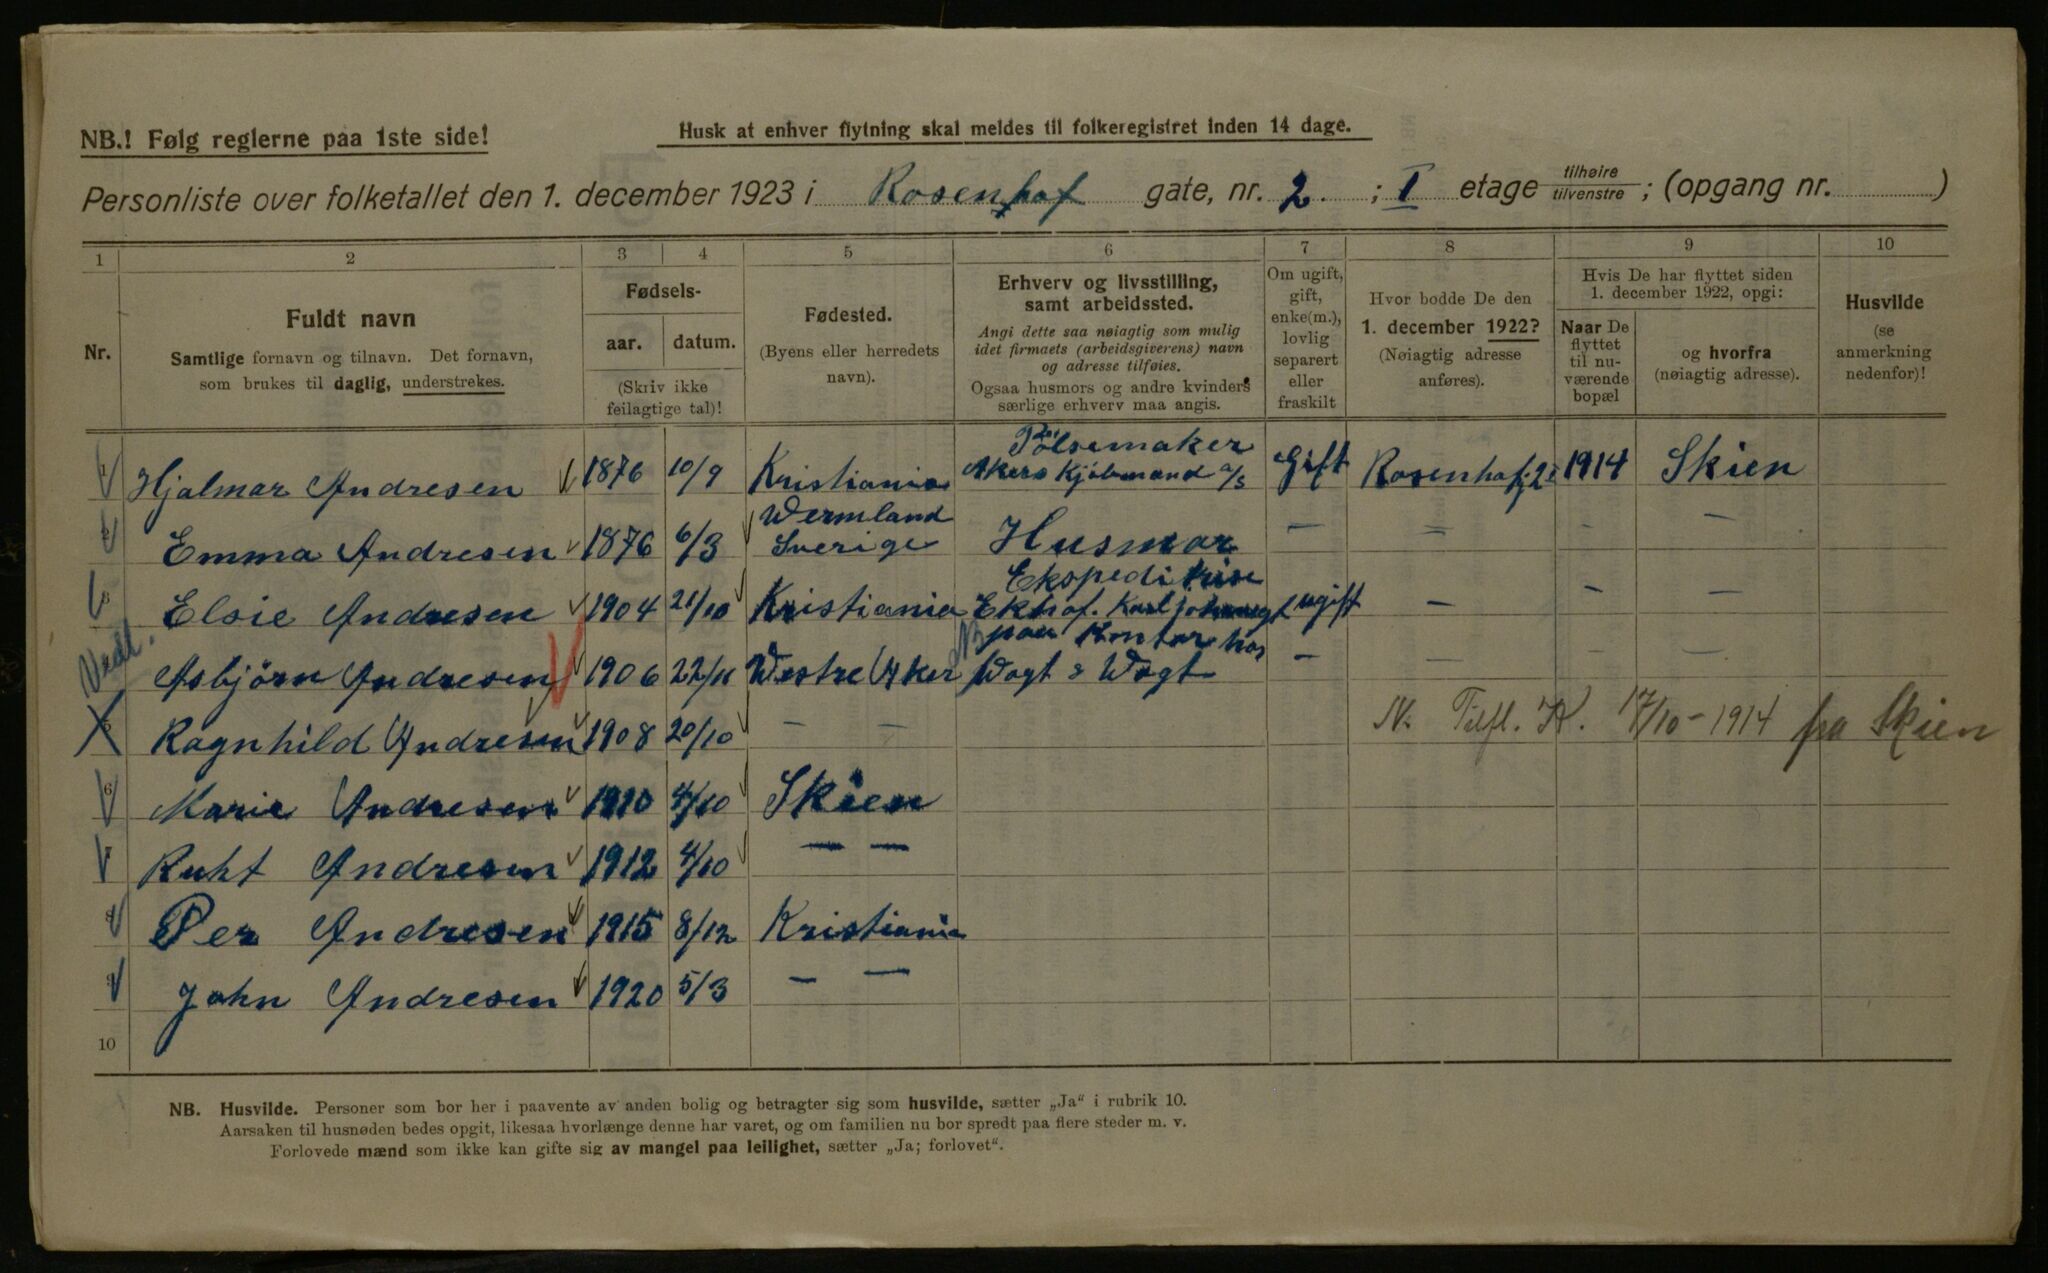 NB.! Følg reglerne paa 1ste side!
Husk at enhver flytning skal meldes til folkeregistret inden 14 dage.
Personliste over folketallet den 1. december 1923 i Rosenhof gate, nr. 2. ; I etage tilhøire tilvenstre ; (opgang nr. )
1 2 3 4 5 6 7 8 9 10
Nr.
Fuldt navn
Samtlige fornavn og tilnavn. Det fornavn,
som brukes til daglig, understrekes.
Fødsels-
aar. datum.
(Skriv ikke
feilagtige tal)!
Fødested.
(Byens eller herredets
navn).
Erhverv og livsstilling,
samt arbeidssted.
Angi dette saa nøiagtig som mulig
idet firmaets (arbeidsgiverens) navn
og adresse tilføies.
Ogsaa husmors og andre kvinders
særlige erhverv maa angis.
Om ugift,
gift,
enke(m.),
lovlig
separert
eller
fraskilt
Hvor bodde De den
1. december 1922?
(Nøiagtig adresse
anføres).
Hvis De har flyttet siden
1. december 1922, opgi:
Naar De
flyttet
til nu-
værende
bopæl
og hvorfra
(nøiagtig adresse).
Husvilde
(se
anmerkning
nedenfor)!
Pølsemaker
1 Hjalmar Andresen 1876 10/9 Kristiania Akers Kjøbmænd a/s Gift Rosenhof. 2 I 1914 Skien
Wermland
2 Emma Andresen 1876 6/3 Sverige Husmor — — — —
Ekspeditrise
3 Elsie Andresen 1904 21/10 Kristiania Ekhof. Karl johansgt ugift — — —
paa Kontor hos
Asbjörn Andresen 1906 22/11 Westre Aker Vogt & Vogt — — — —
5 Ragnhild Andresen 1908 20/10 — — N. Tilfl. K. 17/10-1914 fra Skien
6 Marie Andresen 1910 4/10 Skien
7 Ruht Andresen 1912 4/10 — —
8 Per Andresen 1915 8/12 Kristiania
9 John Andresen 1920 5/3 — —
10
NB. Husvilde. Personer som bor her i paavente av anden bolig og betragter sig som husvilde, sætter „Ja“ i rubrik 10.
Aarsaken til husnøden bedes opgit, likesaa hvorlænge denne har varet, og om familien nu bor spredt paa flere steder m. v.
Forlovede mænd som ikke kan gifte sig av mangel paa leilighet, sætter „Ja; forlovet“.